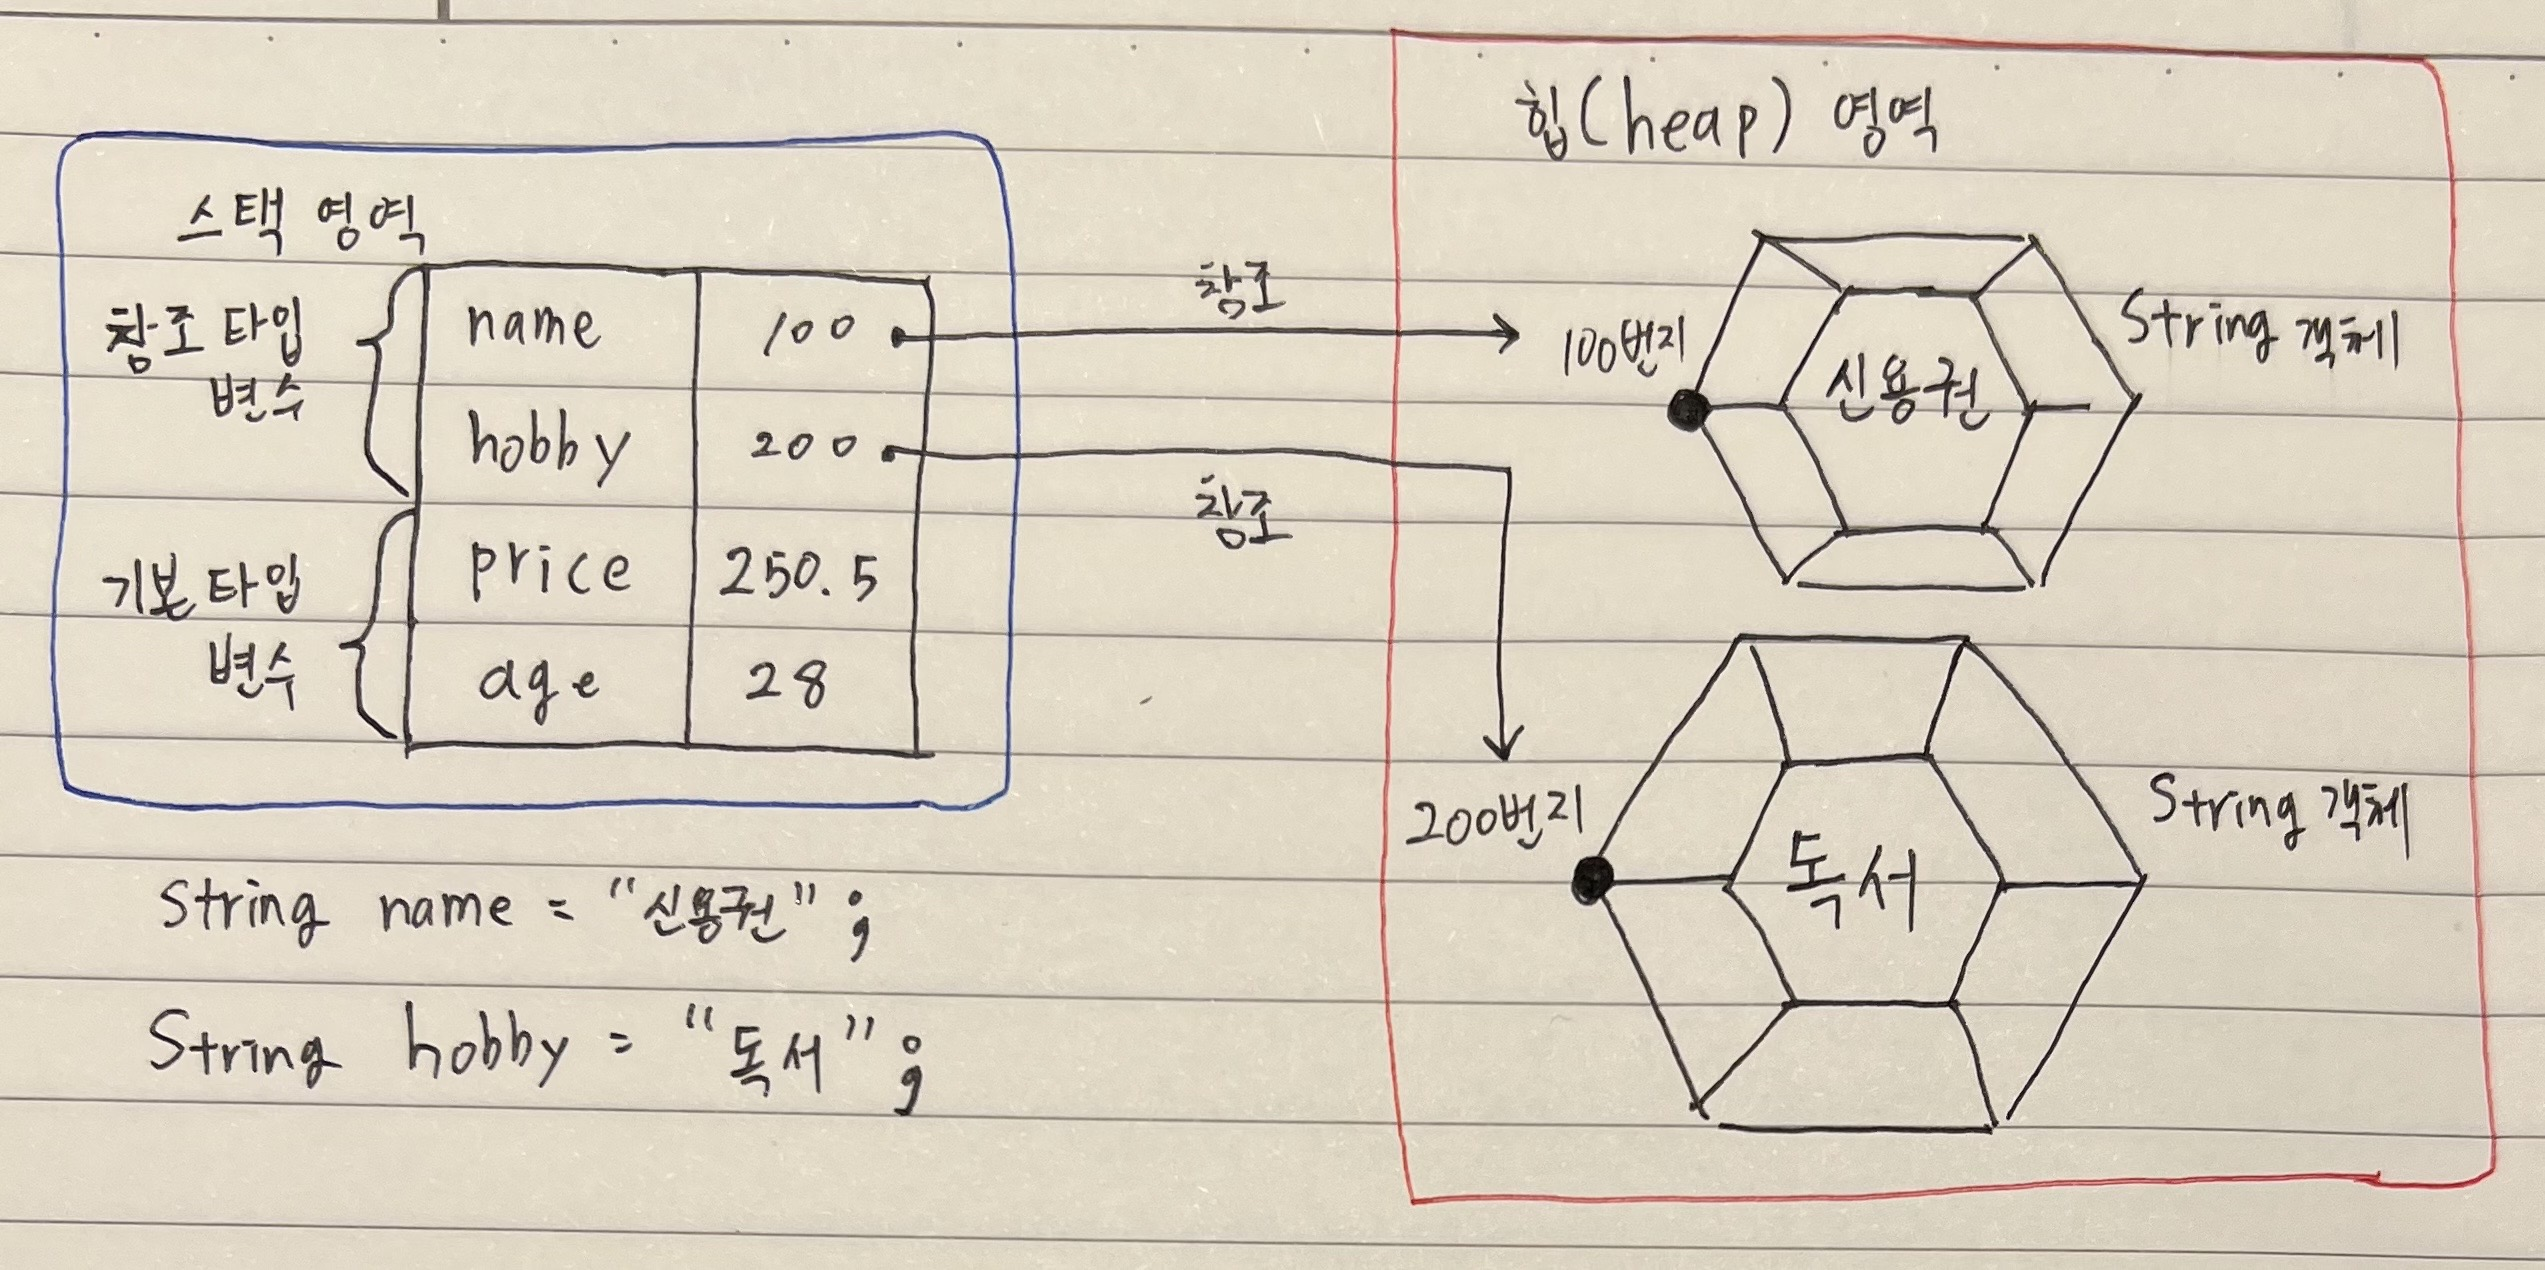 힙(heap) 영역
스택 영역
참조 타입
변수
name 100
hobby 200
기본 타입
변수
price 250.5
age 28
참조
참조
100번지
신용권
String 객체
200번지
독서
String 객체
String name = "신용권";
String hobby = "독서";